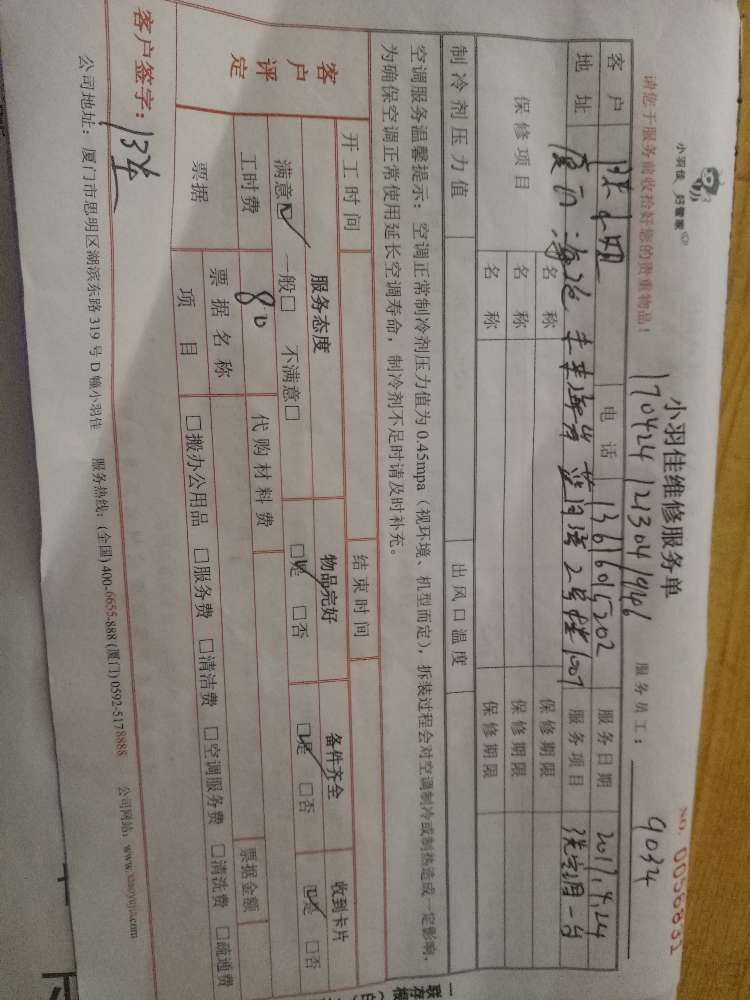 小羽佳 好管家
小羽佳维修服务单
NO. 0056831
1704241213041946
请您于服务前收拾好您的贵重物品!
服务员工: 9034
客户 陈小姐 电话 13616015202 服务日期 2017.4.24
地址 厦门 海沧 未来海岸 蓝月湾2号楼1001 服务项目 洗空调一台
保修项目 名称 保修期限
名称 保修期限
名称 保修期限
制冷剂压力值 出风口温度
空调服务温馨提示:空调正常制冷剂压力值为0.45mpa(视环境、机型而定),拆装过程会对空调制冷或制热造成一定影响,
为确保空调正常使用延长空调寿命,制冷剂不足时请及时补充。
开工时间 结束时间
客户评定 服务态度 物品完好 备件齐全 收到卡片
满意☑ 一般□ 不满意□ ☑是 □否 ☑是 □否 ☑是 □否
工时费 80 代购材料费
票据 票据名称 票据金额
项目 □搬办公用品 □服务费 □清洁费 □空调服务费 □清洗费 □疏通费
客户签字:
公司地址:厦门市思明区湖滨东路319号D幢小羽佳 服务热线:(全国)400-6655-888 (厦门)0592-5178888 公司网站:www.xiaoyujia.com